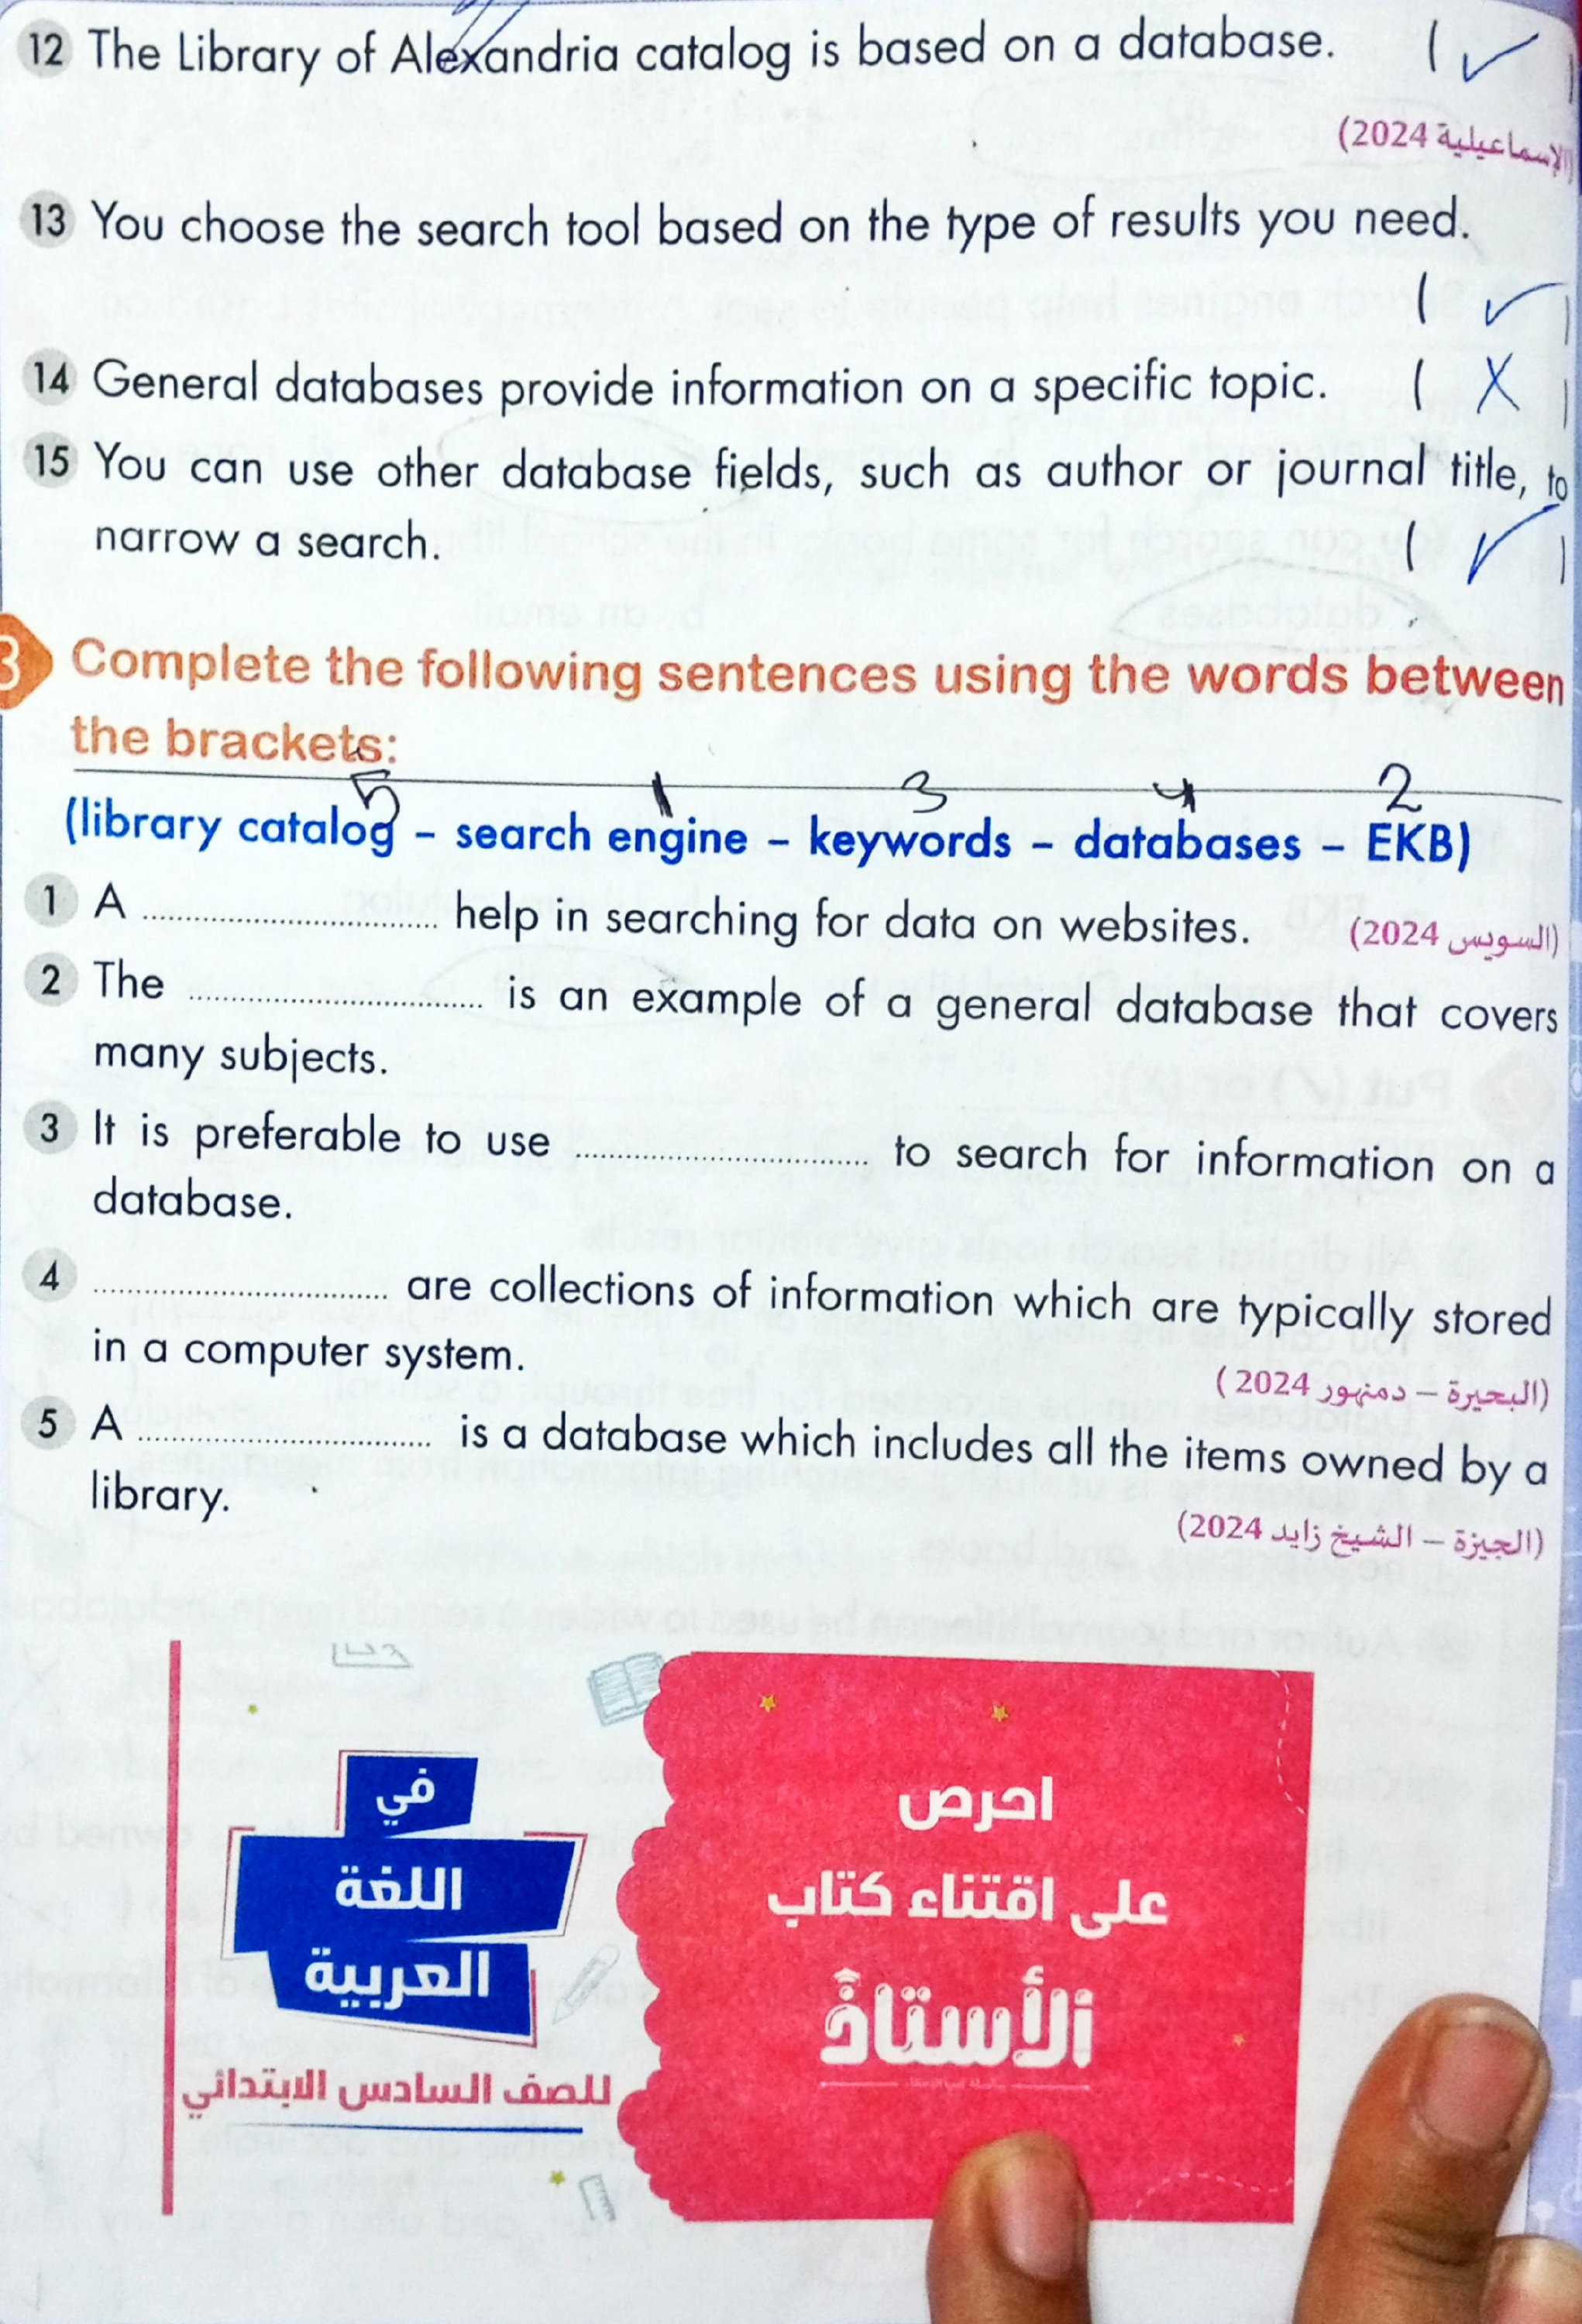 12 The Library of Alexandria catalog is based on a database. ( ✓ )
(الإسماعيلية 2024)
13 You choose the search tool based on the type of results you need.
( ✓ )
14 General databases provide information on a specific topic. ( X )
15 You can use other database fields, such as author or journal title, to
narrow a search. ( ✓ )
3 Complete the following sentences using the words between
the brackets:
5 1 3 4 2
(library catalog – search engine – keywords – databases – EKB)
1 A .............................. help in searching for data on websites. (السويس 2024)
2 The .............................. is an example of a general database that covers
many subjects.
3 It is preferable to use .............................. to search for information on a
database.
4 .............................. are collections of information which are typically stored
in a computer system.
(البحيرة – دمنهور 2024 )
5 A .............................. is a database which includes all the items owned by a
library.
(الجيزة – الشيخ زايد 2024)
احرص
على اقتناء كتاب
الأستاذ
في
اللغة
العربية
للصف السادس الابتدائي